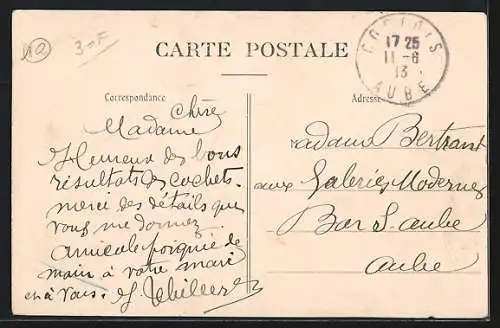 1a
30F
CARTE POSTALE
17 25
11-6
13
AUBE
Correspondance
Adresse
Chère
Madame
Heureux des bons
résultats des cachets.
merci des détails que
vous me donnez
amicale poignée de
main à votre mari
et à vous.
Madame Bertrant
aux Galeries Modernes
Bar S. aube
aube